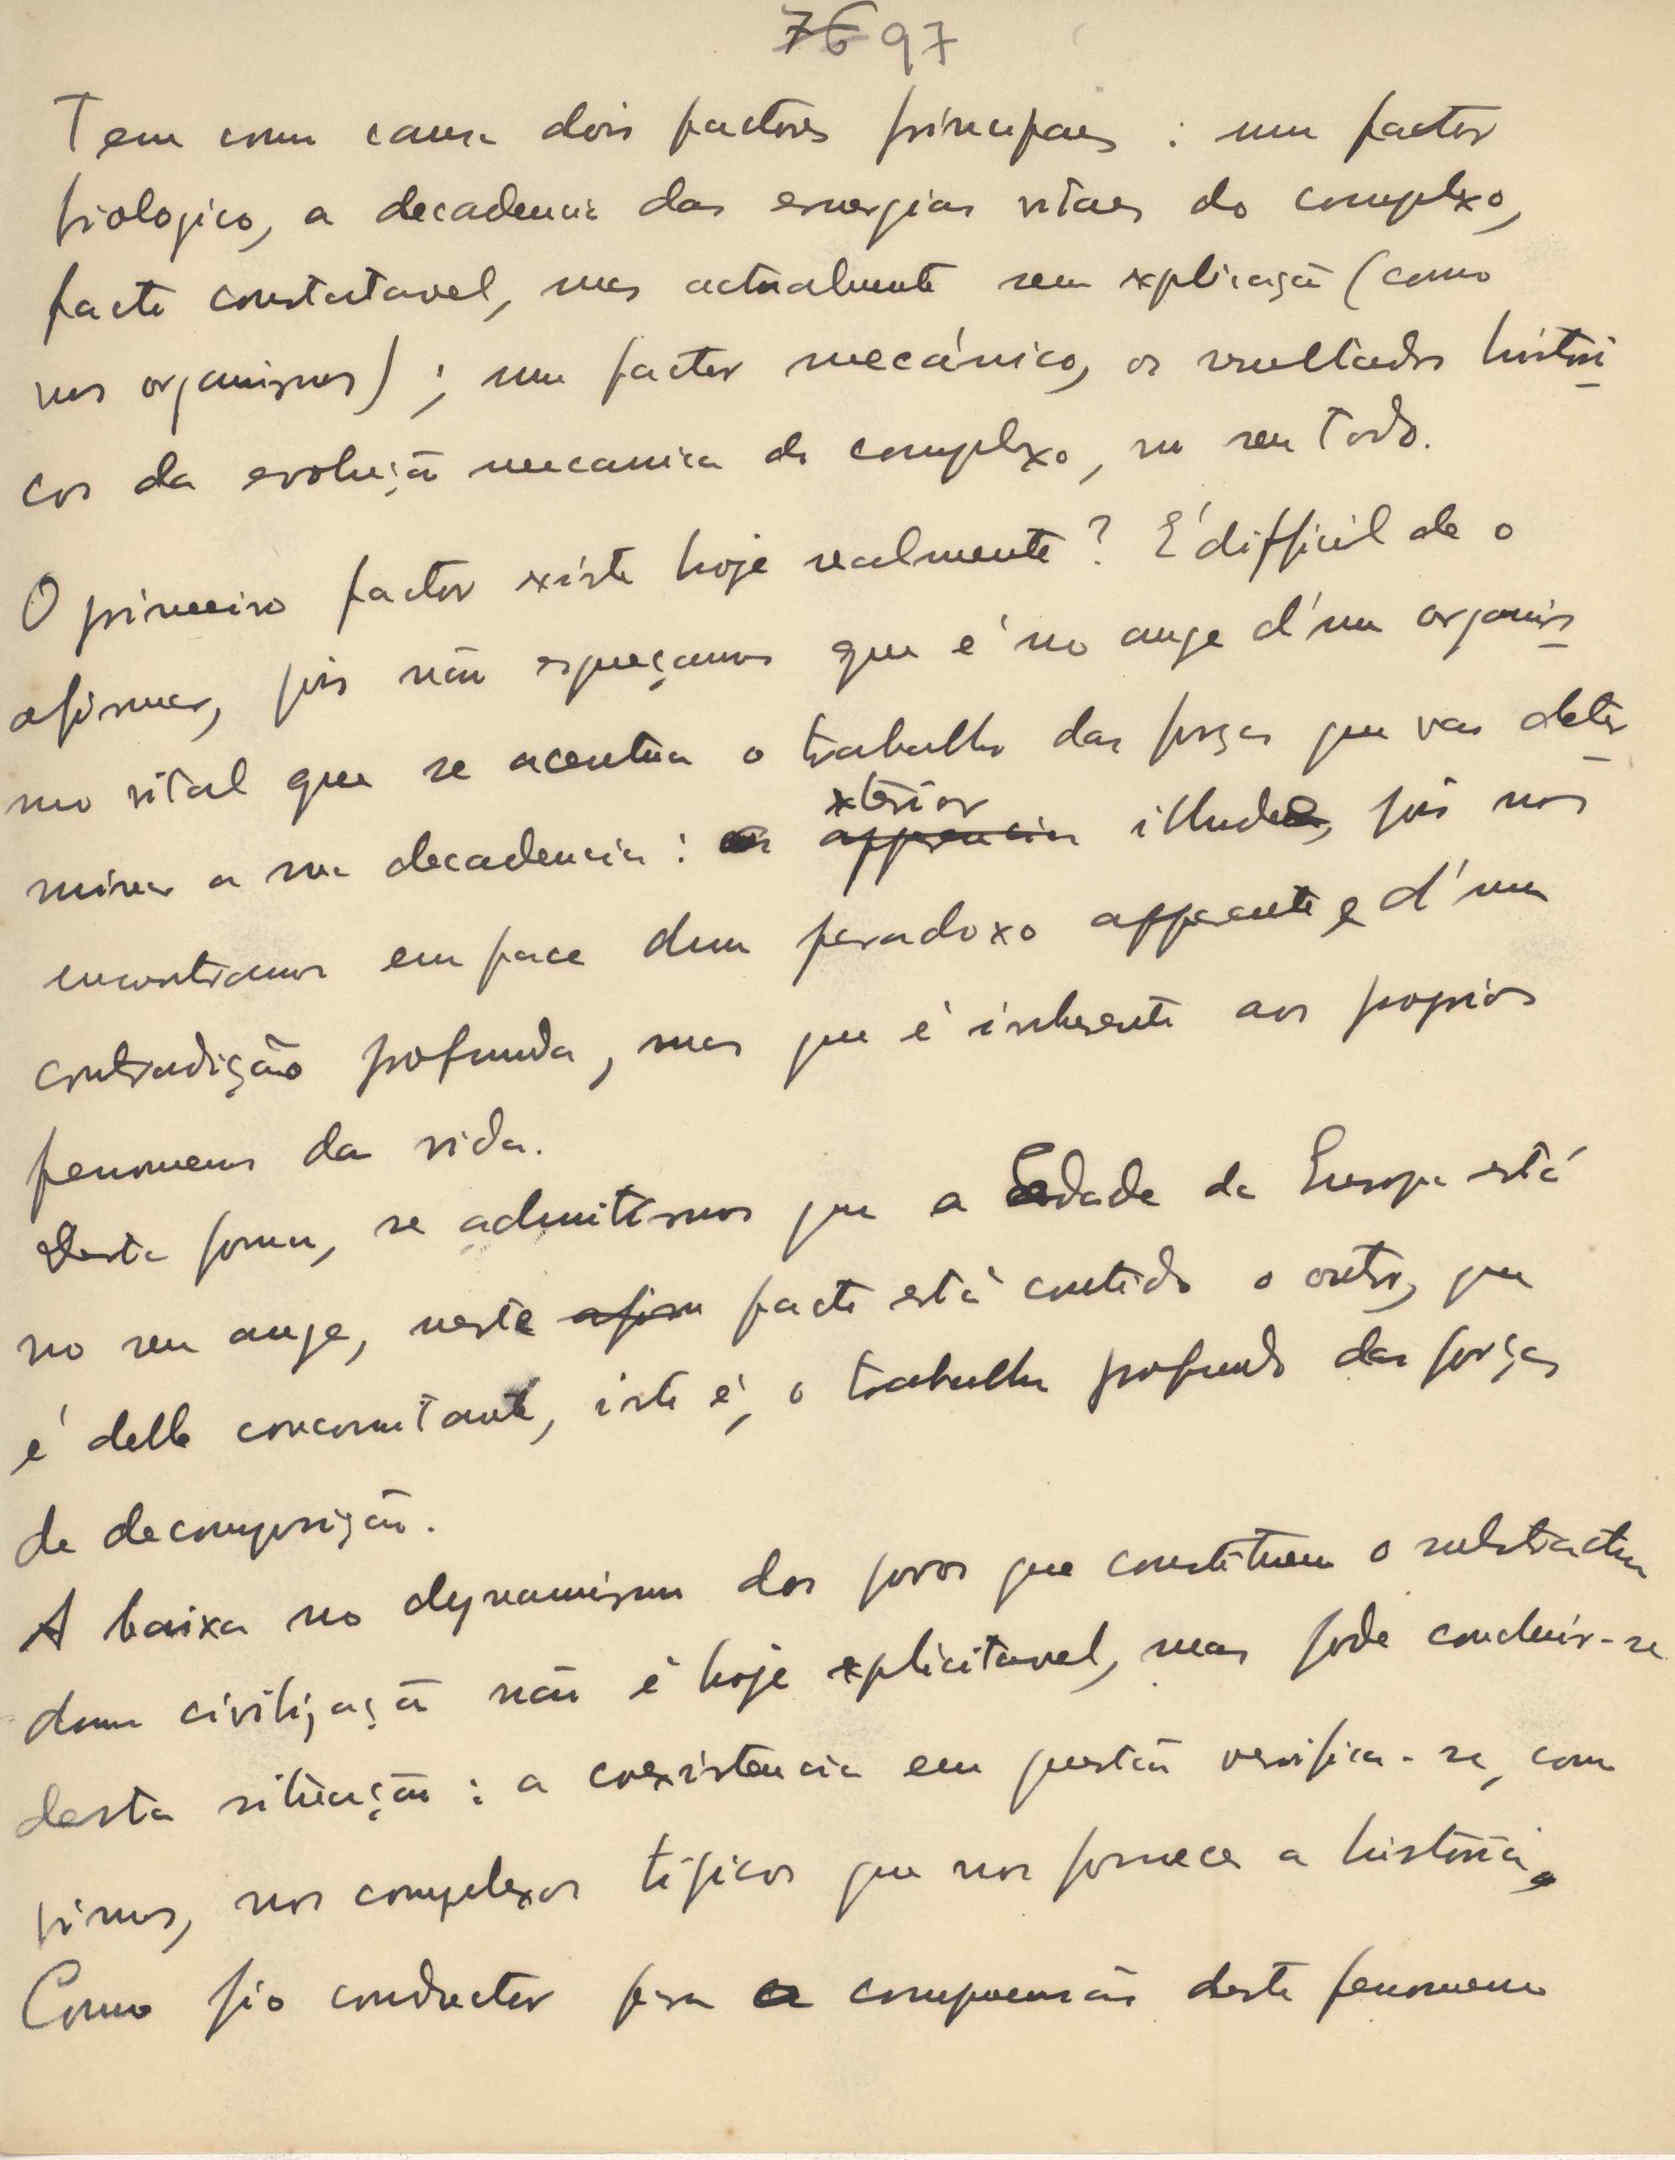 76 97
Tem como causa dois factores principaes : um factor
biologico, a decadencia das energias vitaes do complexo,
facto constatavel, mas actualmente sem explicação (como
nos organismos) ; um factor mecánico, os resultados histori
cos da evolução mecanica do complexo, no seu todo.
O primeiro factor existe hoje realmente? É difficil de o
afirmar, pois não esqueçamos que é no auge d'um organis
mo vital que se acentua o trabalho das forças que vão deter
minar a sua decadencia : o
exterior
apparencia illude, pois nos
encontramos em face dum paradoxo apparente e d'uma
contradição profunda, mas que é inherente aos proprios
fenomenos da vida.
Desta forma, se admitirmos que a Edade da Europa está
no seu auge, neste afirm facto está contido o outro, que
é delle concomitante, isto é, o trabalho profundo das forças
de decomposição.
A baixa no dynamismo dos povos que constituem o substractum
duma civilização não é hoje explicitavel, mas pode concluir-se
desta situação : a coexistencia em questão verifica-se, como
vimos, nos complexos tipicos que nos fornece a história.
Como fio conductor para a compreensão deste fenomeno